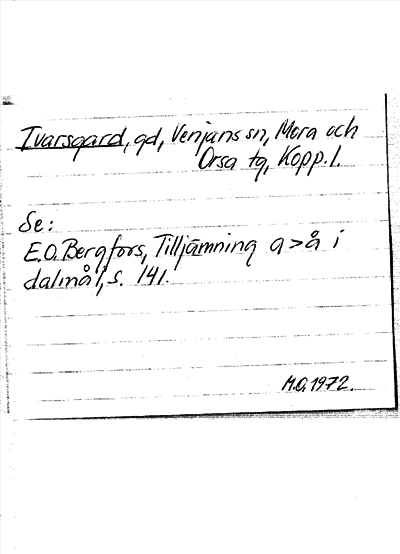 Ivarsgard, gd, Venjans sn, Mora och
Orsa tg, Kopp. l.
Se:
E.O. Bergfors, Tilljämning a>å i
dalmål, s. 141.
M.O. 1972.